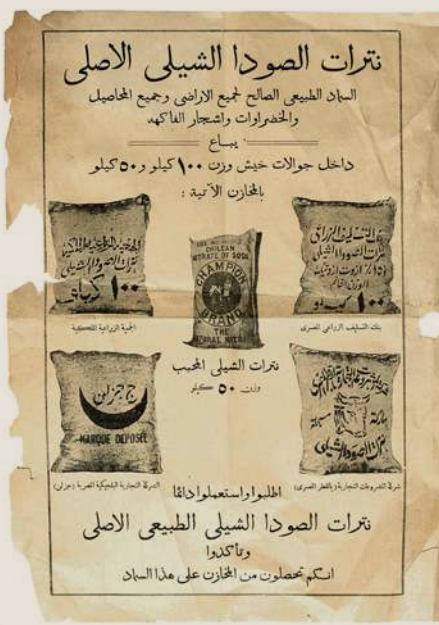 نترات الصودا الشيلى الاصلى
السماد الطبيعى الصالح لجميع الاراضى وجميع المحاصيل
والخضراوات واشجار الفاكهه
يباع
داخل جوالات خيش وزن ١٠٠ كيلو و ٥٠ كيلو
بالمخازن الآتية :
نترات الصودا الشيلى
١٠٠ كيلو
الجمعية الزراعية الملكية
CHILEAN
NITRATE OF SODA
CHAMPION
BRAND
THE
NATURAL
بنك التسليف الزراعى
نترات الصودا الشيلى
١٠٠ كيلو
بنك التسليف الزراعى المصرى
نترات الشيلى المحبب
وزن ٥٠ كيلو
ج جزلن
MARQUE DEPOSÉE
الشركة التجارية البلجيكية المصرية (جزلن)
نترات الصودا الشيلى
اطلبوا واستعملوا دائما
نترات الصودا الشيلى الطبيعى الاصلى
وتأكدوا
انكم تحصلون من المخازن على هذا السماد